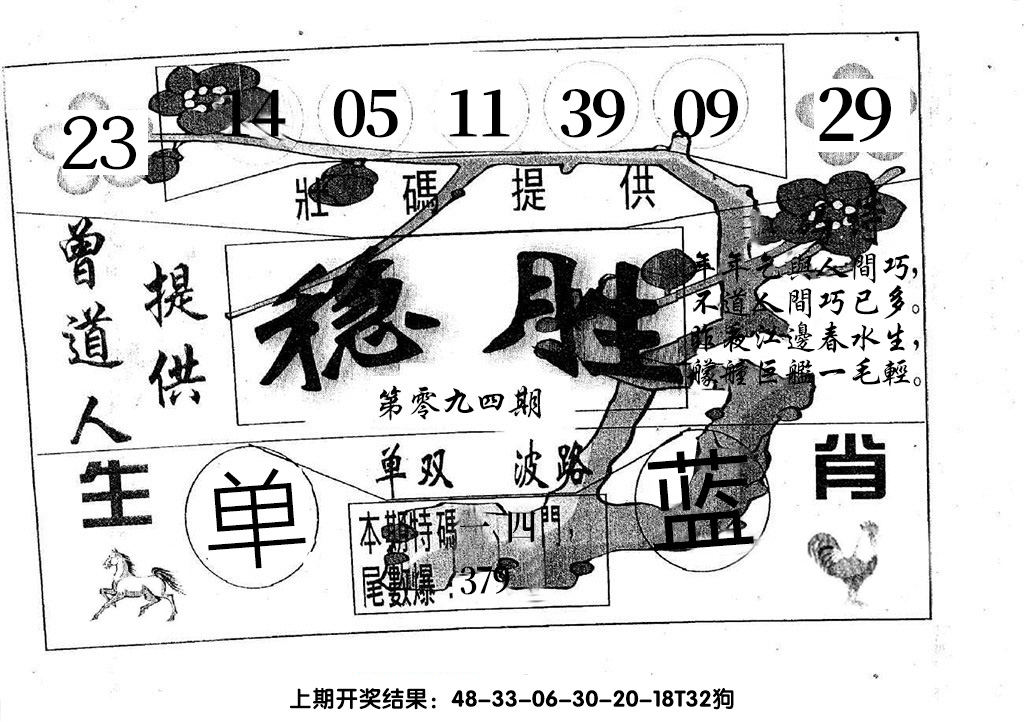 23 14 05 11 39 09 29
壯碼提供
特
曾道人
提供
稳胜
第零九四期
年年乞與人間巧,
不道人間巧已多。
昨夜江邊春水生,
艨艟巨艦一毛輕。
单双 波路
生肖
单
蓝
本期特碼一、四門,
尾數爆:379
上期开奖结果:48-33-06-30-20-18T32狗